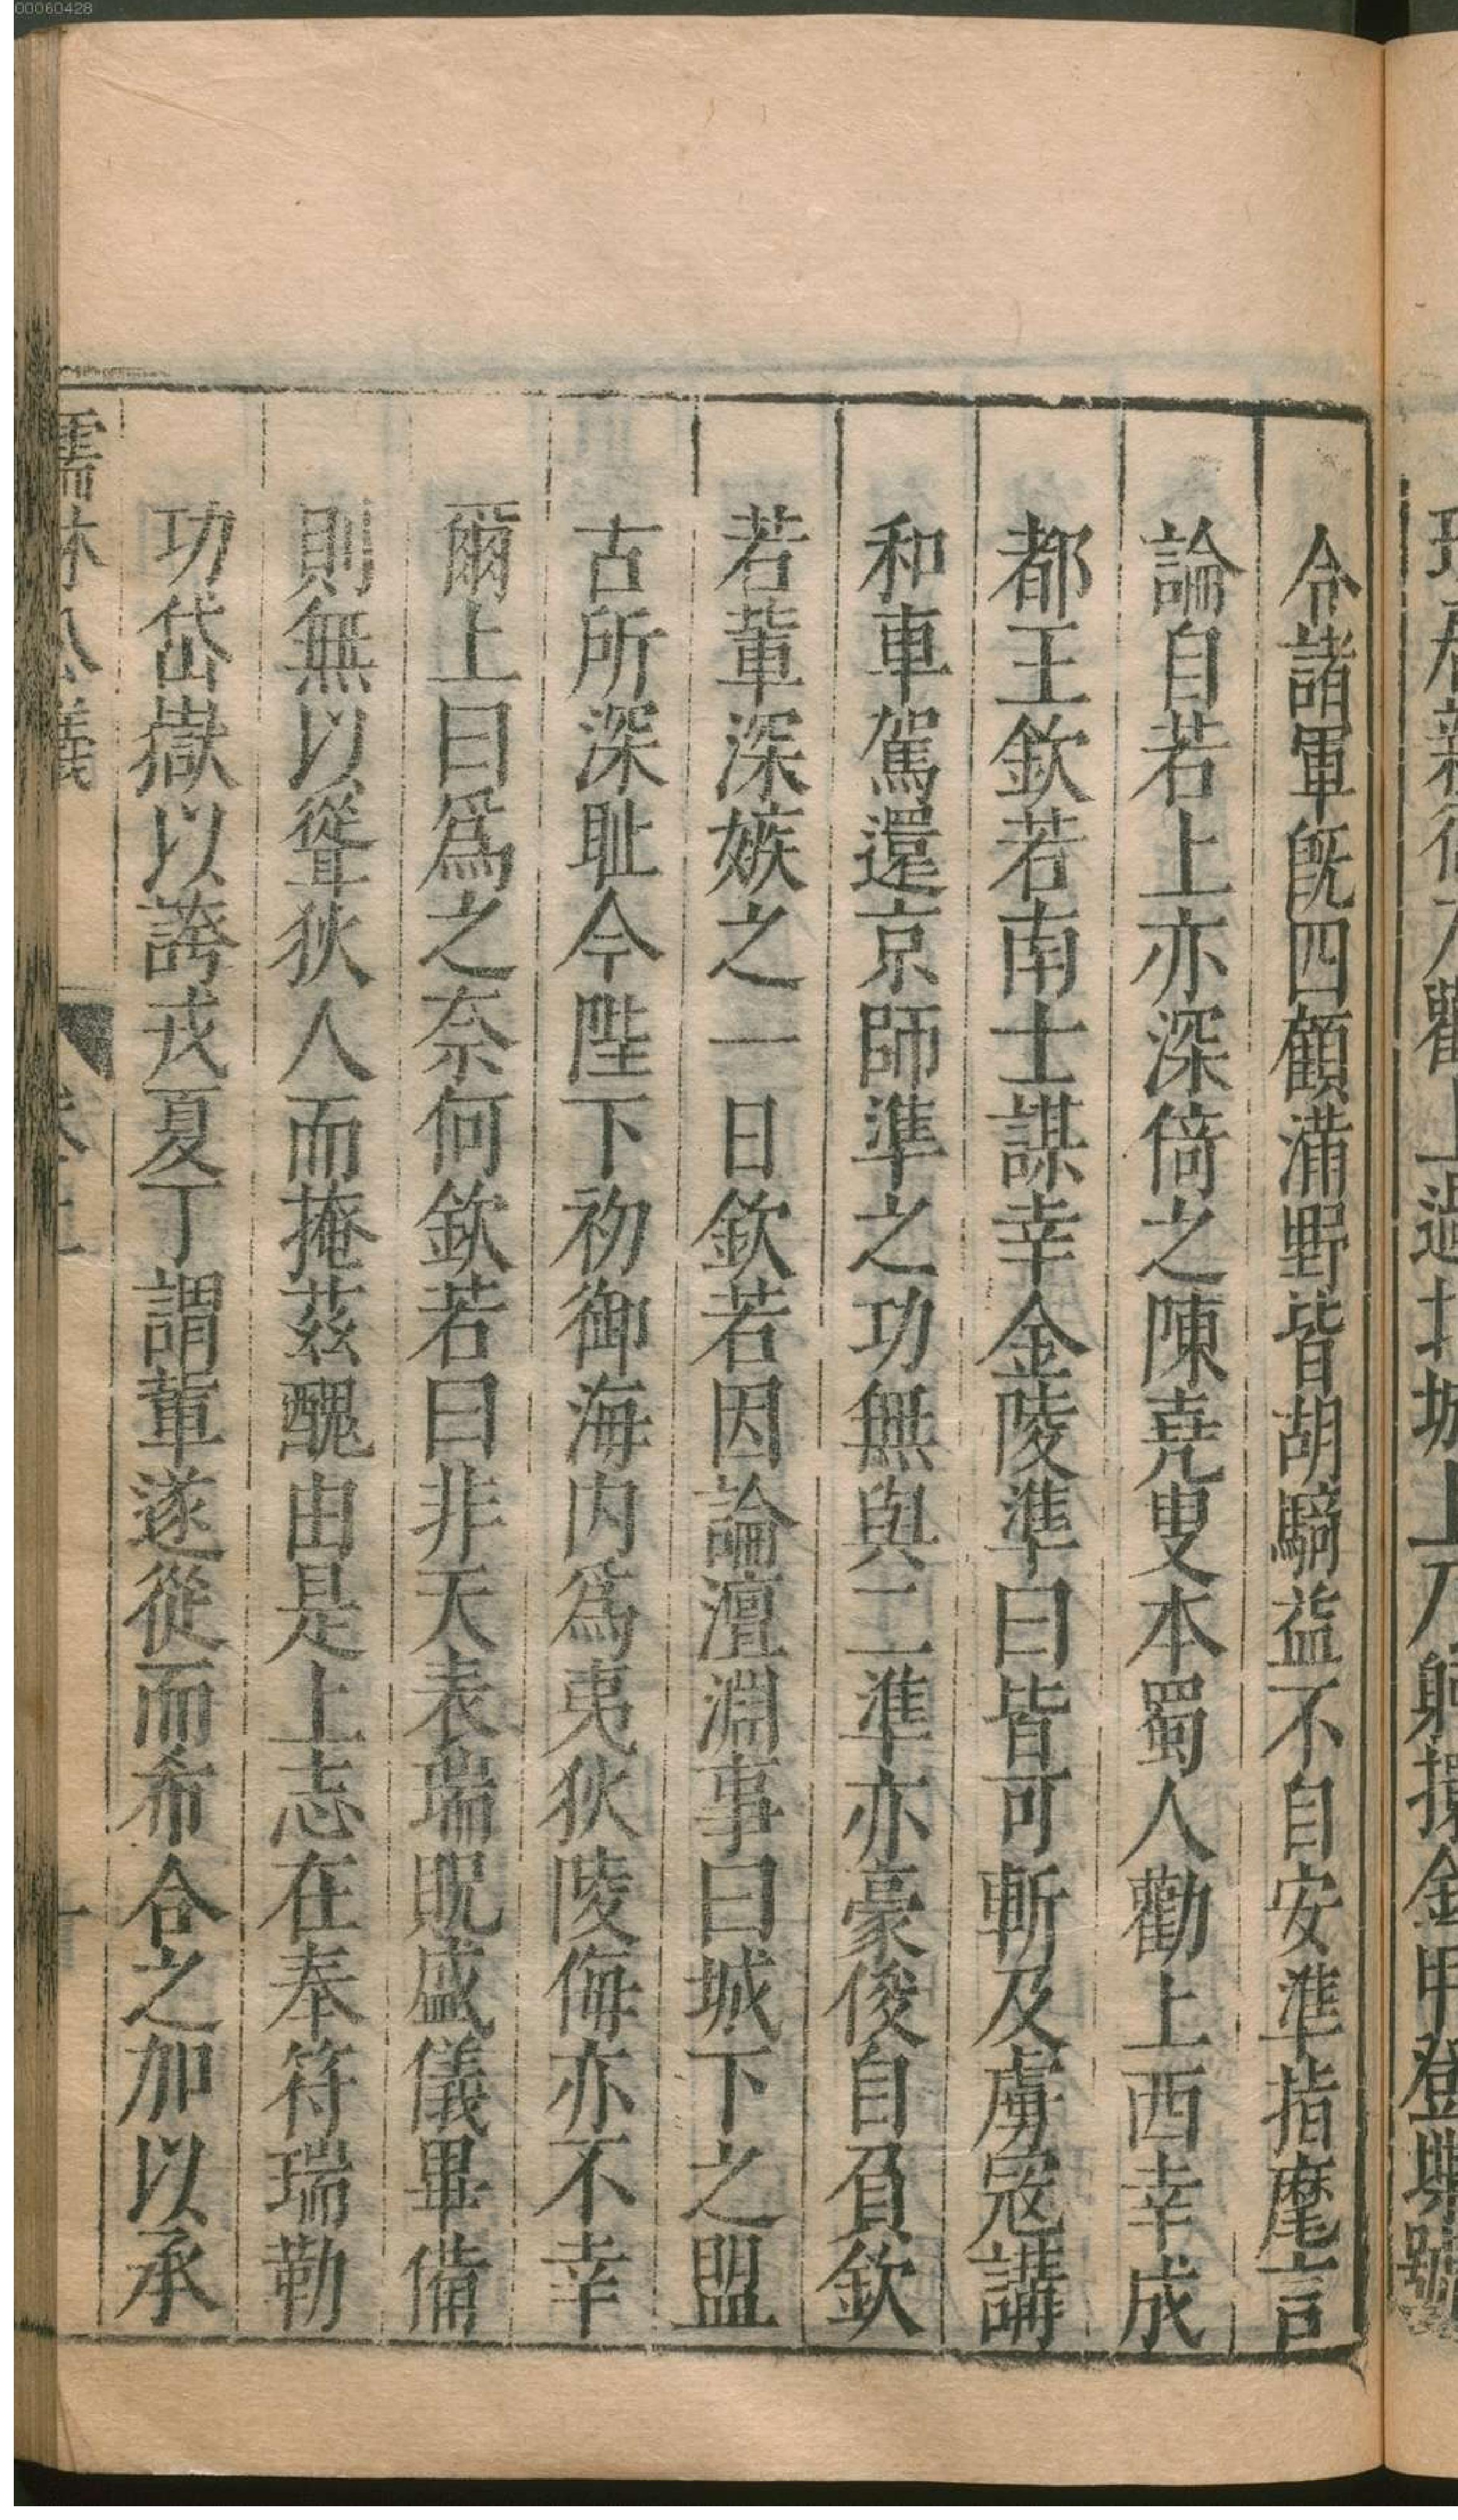 令諸軍旣四顧滿野皆胡騎益不自安準指麾言
論自若上亦深倚之陳堯叟本蜀人勸上西幸成
都王欽若南士謀幸金陵準曰皆可斬及虜寇講
和車駕還京師準之功無與二準亦豪俊自負欽
若輩深嫉之一日欽若因論澶淵事曰城下之盟
古所深耻今陛下初御海内爲夷狄陵侮亦不幸
爾上曰爲之奈何欽若曰非天表瑞貺盛儀畢備
則無以聳狄人而掩茲醜由是上志在奉符瑞勒
功岱嶽以誇戎夏丁謂輩遂從而希合之加以承
儒林公議
00060428